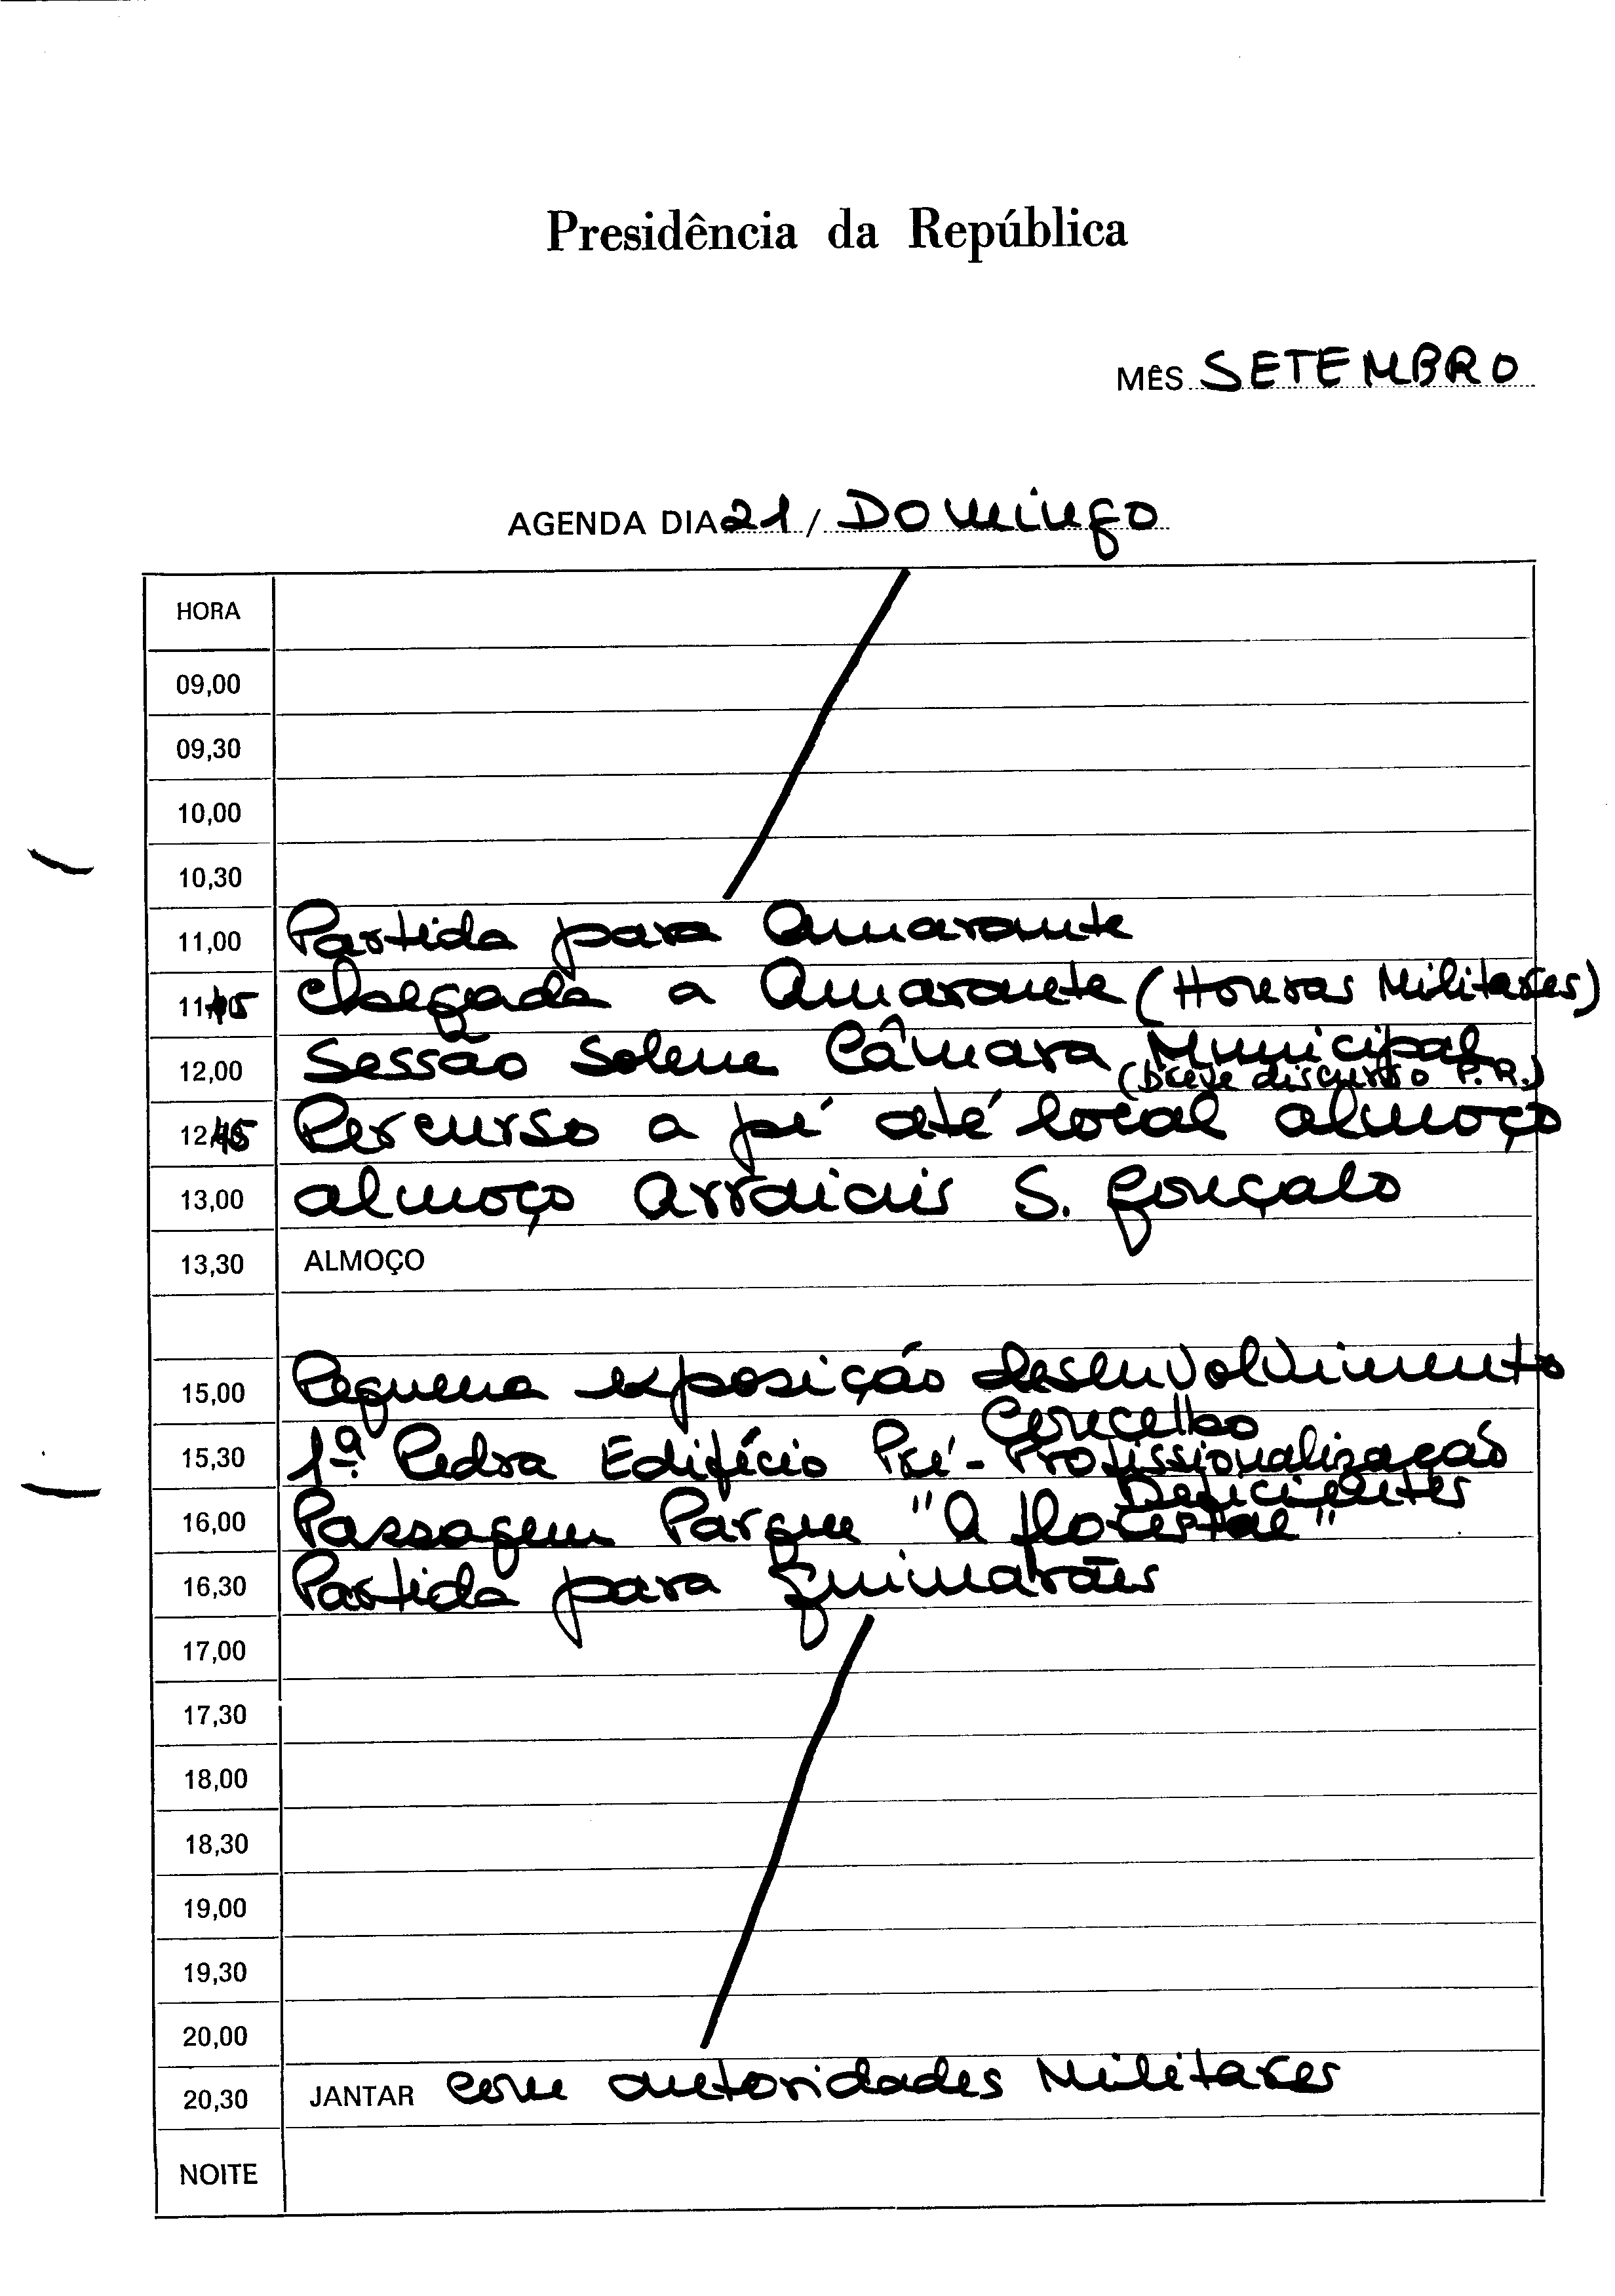 Presidência da República
MÊS SETEMBRO
AGENDA DIA 21 / Domingo
HORA
09,00
09,30
10,00
10,30
11,00 Partida para Amarante
11,45 Chegada a Amarante (Honras Militares)
12,00 Sessão Solene Câmara Municipal
(breve discurso P.R.)
12,45 Percurso a pé até local almoço
13,00 almoço Arraiais S. Gonçalo
13,30 ALMOÇO
15,00 Pequena exposição desenvolvimento
Concelho
15,30 1ª. Pedra Edifício Pré-Profissionalização
Deficientes
16,00 Passagem Parque "A florestal"
16,30 Partida para Guimarães
17,00
17,30
18,00
18,30
19,00
19,30
20,00
20,30 JANTAR com autoridades Militares
NOITE